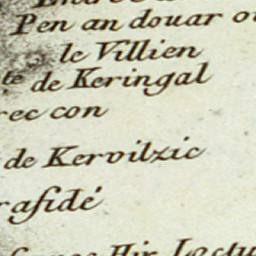 Pen an douar
le Villien
te de Keringal
rec con
de Kervilzic
rafidé